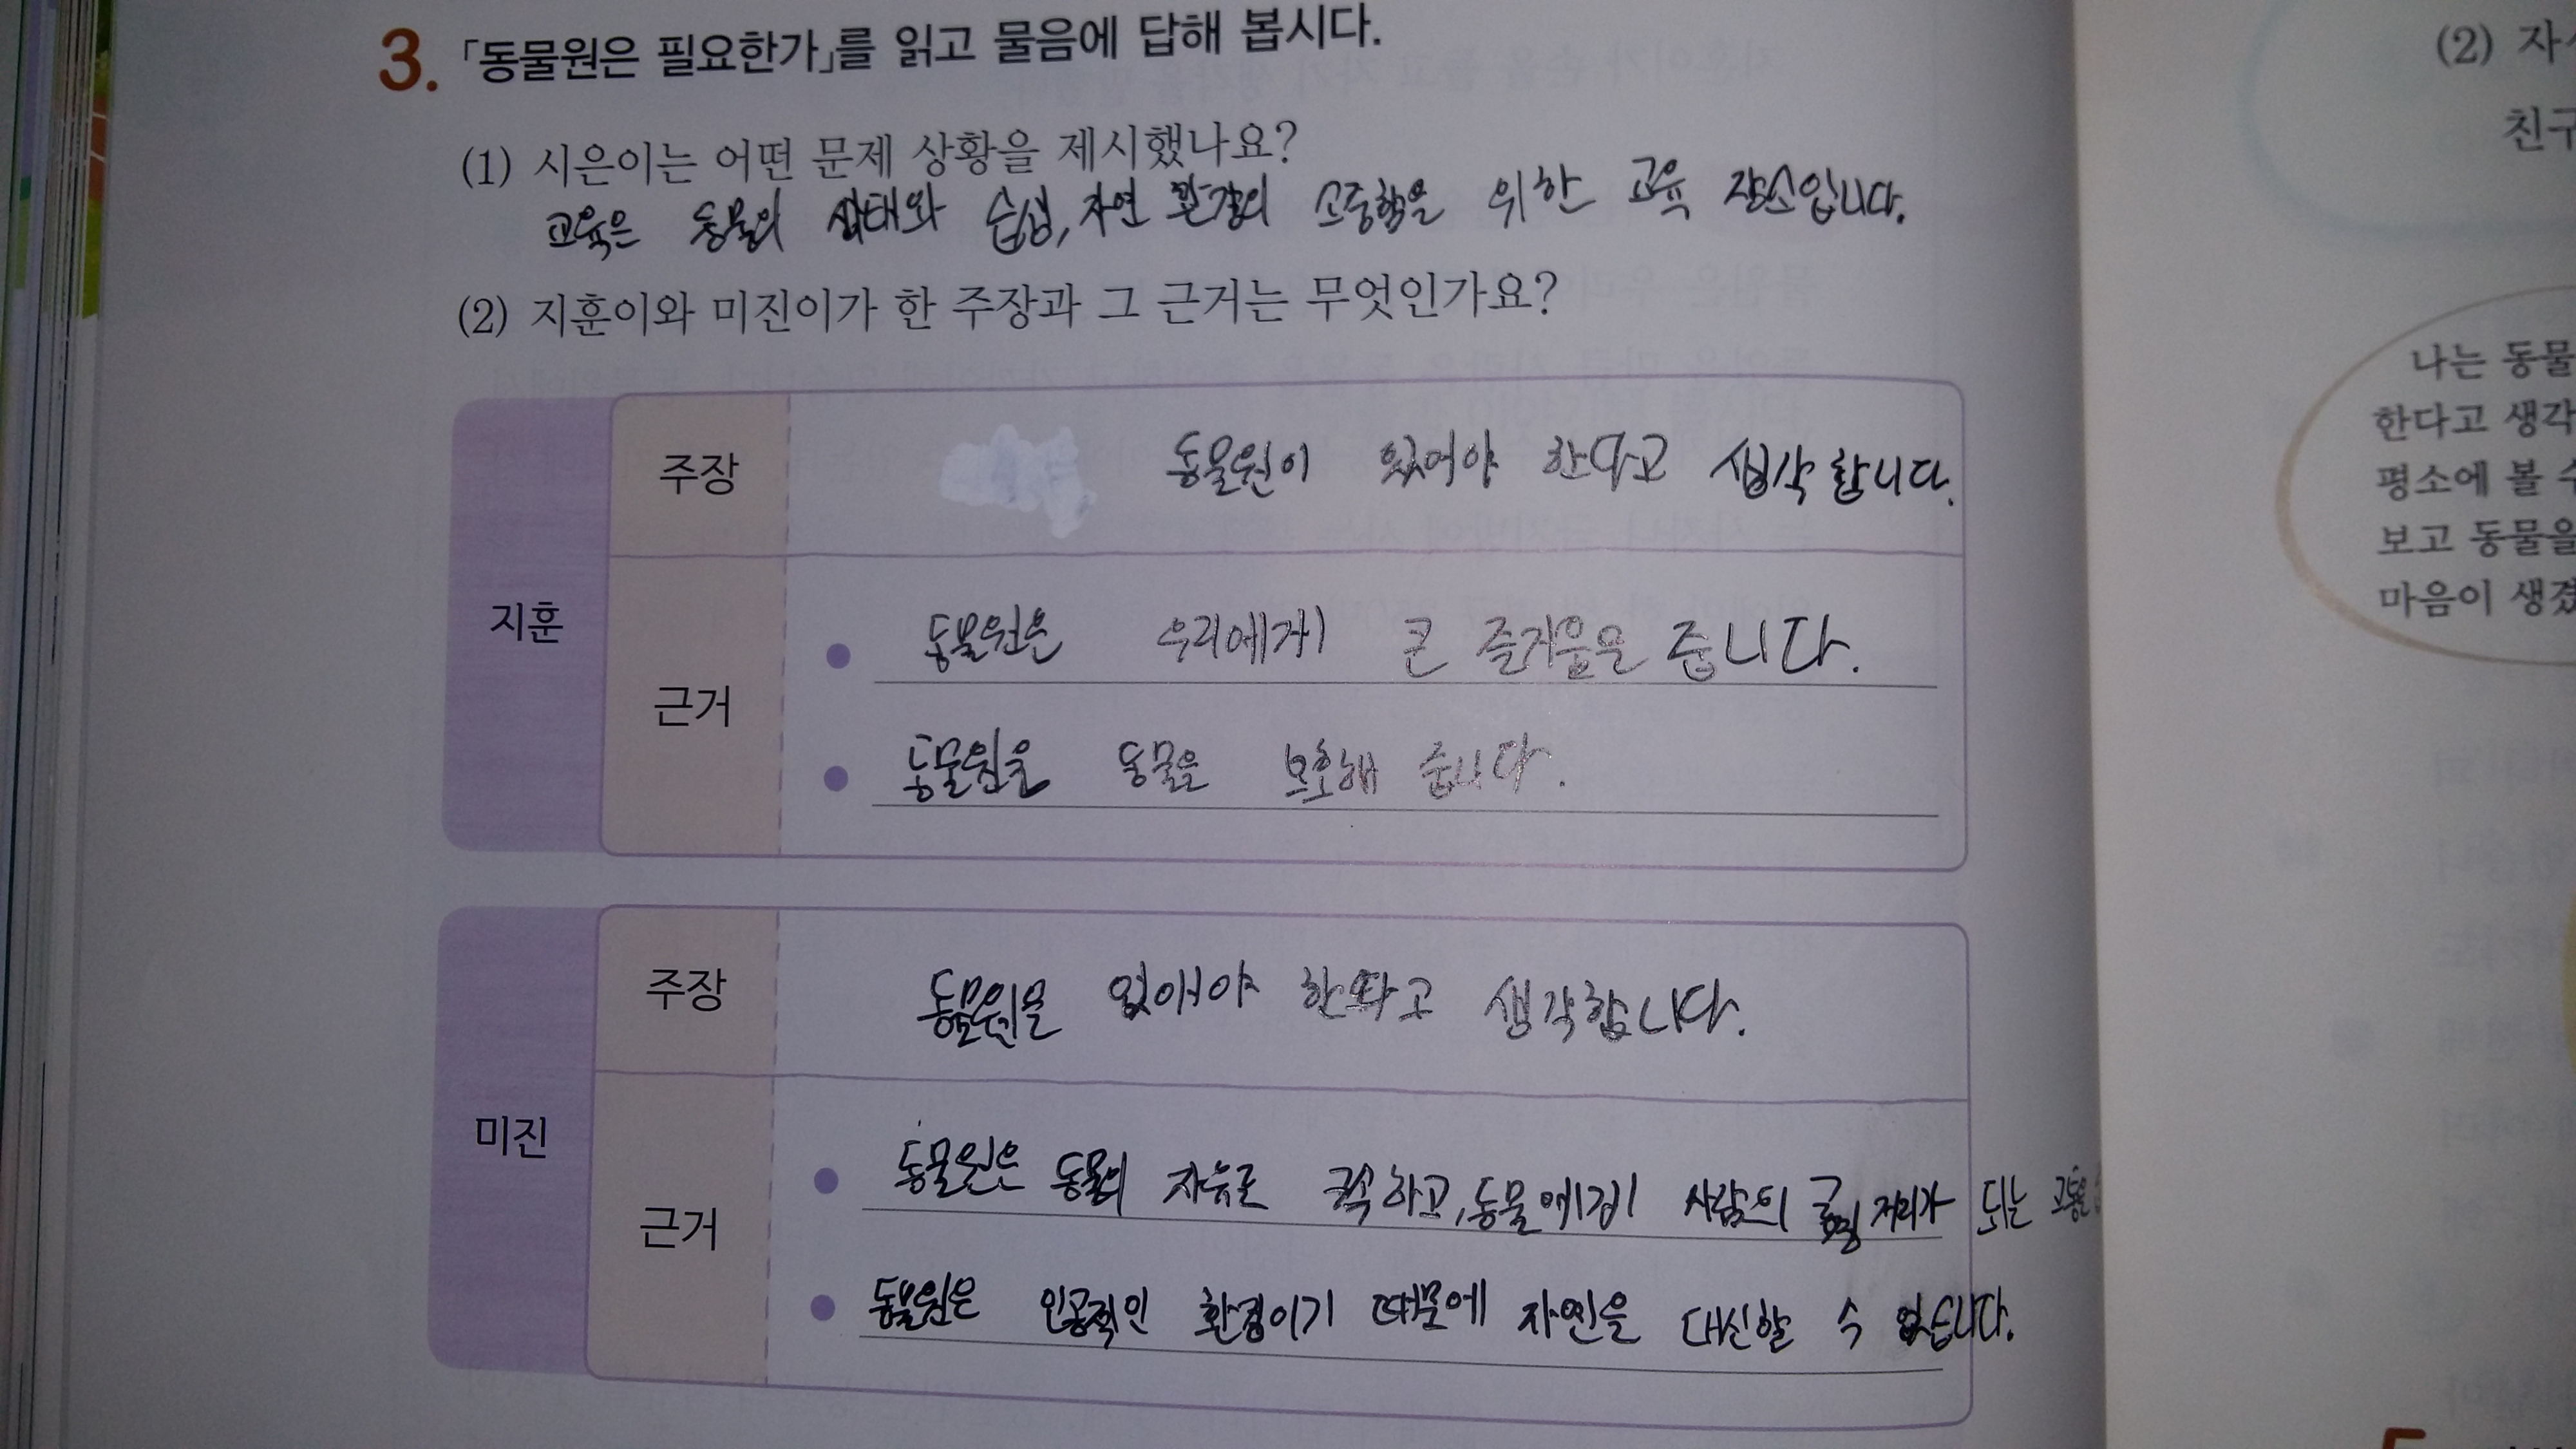 3. 「동물원은 필요한가」를 읽고 물음에 답해 봅시다.
(1) 시은이는 어떤 문제 상황을 제시했나요?
교육은 동물의 생태와 습성, 자연 환경의 소중함을 위한 교육 장소입니다.
(2) 지훈이와 미진이가 한 주장과 그 근거는 무엇인가요?
지훈
주장
동물원이 있어야 한다고 생각합니다.
근거
동물원은 우리에게 큰 즐거움을 줍니다.
동물원을 동물을 보호해 줍니다.
미진
주장
동물원을 없애야 한다고 생각합니다.
근거
동물원은 동물의 자유로 하고, 동물에게 사람의 거리가 되는
동물원은 인공적인 환경이기 때문에 자연을 대신할 수 없습니다.
(2)
친구
나는 동물
한다고 생각
평소에 볼 수
보고 동물을
마음이 생겼